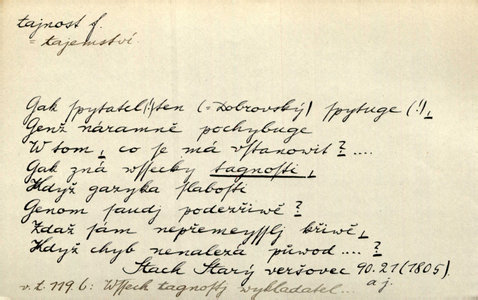 tajnost f.
= tajemství.
Gak spytatel(!) ten (= Dobrovský) spytuge (!),
Genž náramně pochybuge
W tom, co se má vstanowit? ....
Gak zná wssecky tagnosti,
Když gazyka slabosti
Genom saudj podezřiwě?
Zdaž sám nepřemeysslj křiwě,
Když chyb nenalezá půwod ....?
Stach Starý veršovec 90.21 (1805).
a j.
v. t. 119.6: Wssech tagnostj wykladatel...